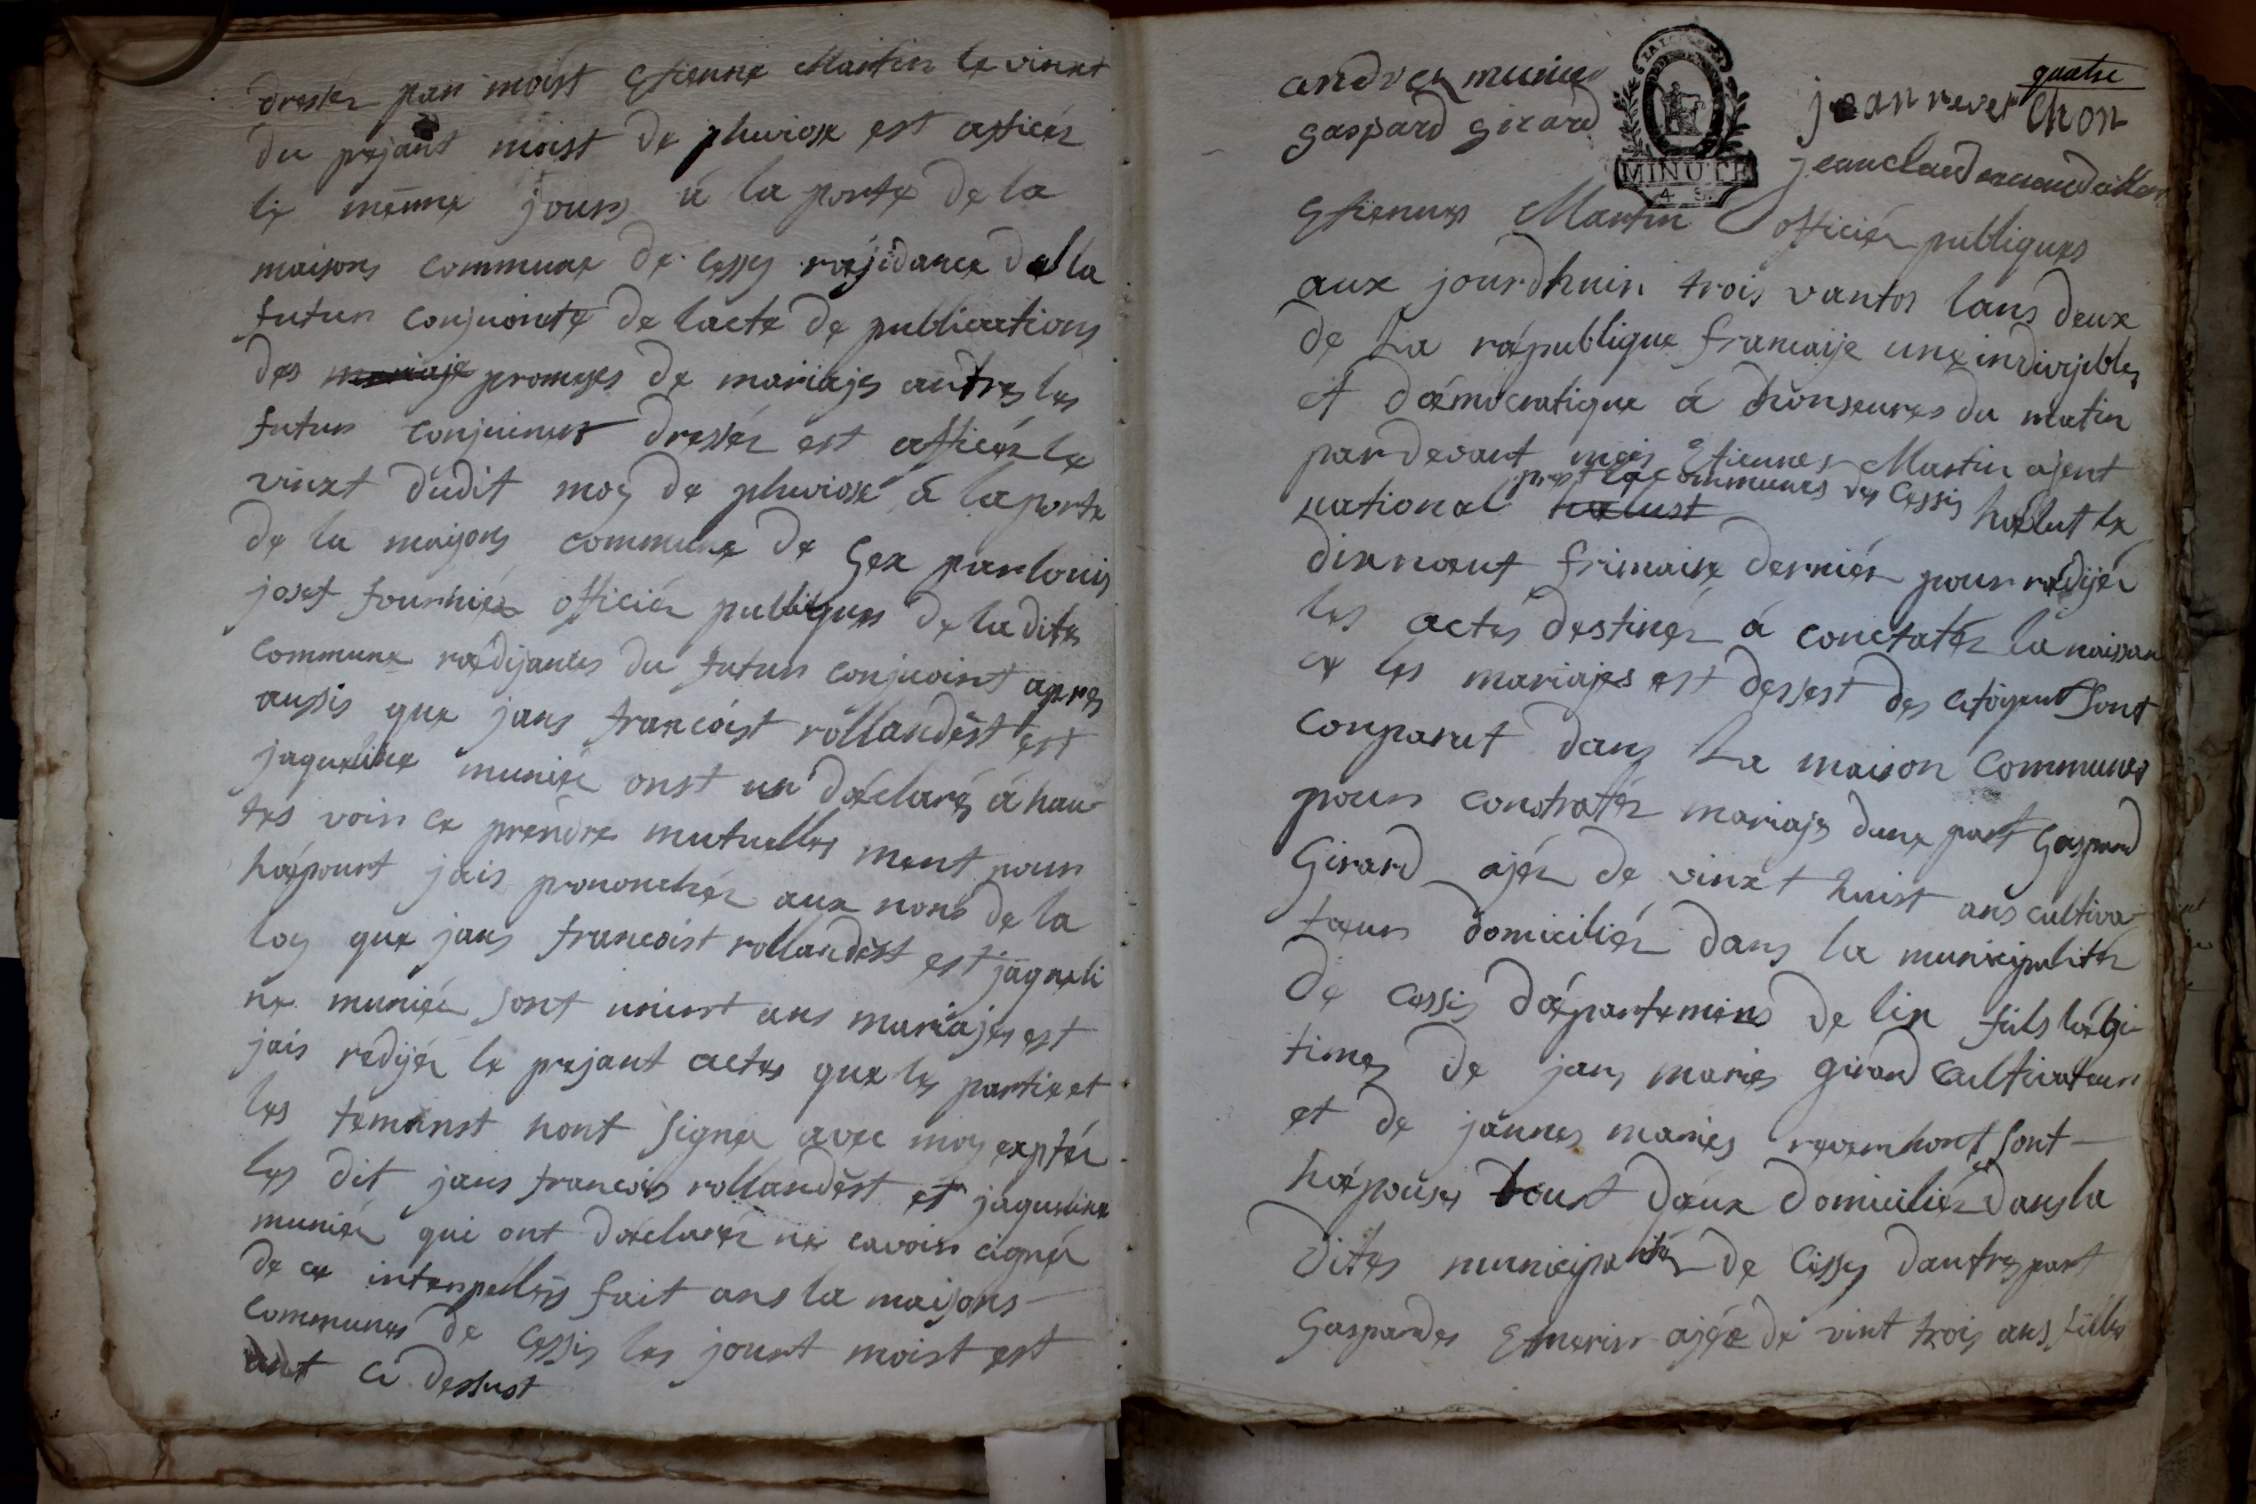 dressér par moist Etienne Martin le vinxt
du prejant moist de pluviose est afficér
le mênne jours à la porte de la
maisons commune de cessy réjidance de la
futur conjuointe de lacte de publications
des mariaje promeses de mariajes antres les
futur conjuinus dressér est afficér le
vinxt dudit moy de pluviose à la porte
de la maisons commune de Gex par louis
josef fournier officiér publiques de la dites
commune rædijantes du futur conjuoint apres
aussis que jans francoist rollandest est
jaqueline muniér onst un déclarés à hau
tes voir ce prendre mutuelles ment pour
hæpoust jais prononchér aux noms de la
loy que jans francoist rollandest est jaqueli
ne muniér sont uniest ans mariajes est
jais redijér le prejant actes que les partie et
les temoinst nont signer avec moy exptér
les dit jans francois rollandest et jaqueline
muniér qui ont déclarér ne cavoir cignér
de ce interpellés fait ans la maisons
communes de Cessis les jourt moist est
ant ci dessust
quatre
andrez munier
jean rever chon
gaspard girard
MINUTE
4 S.
Etiennes Martin officiér publiques
aux jourdhuin trois vantos lans deux
de La république francaije une indivijibles
et démocratique à dionseures du matin
par devant mois Etiennes Martin ajent
national hælust pour la communes des Cessis hælut le
dix nœuf frimaire derniér pour rædijér
les actes destinér à conctatér la naissan
ce les mariajes est dessest des citoyent sont
conparut dans La maison communes
pour constratér mariajes dune part Gaspard
Girard ajér de vinxt huist ans cultiva
tæur domiciliér dans la municipalitér
de cessis départemens de lin fils légi
times de jans maries girard Cultivateur
et de jannes maries reverchont sont
hæpouses tout dœux domiciliér dans la
dites municipalitér de Cessy dautres part
Gaspardes Emerin ajée de vint trois ans filles